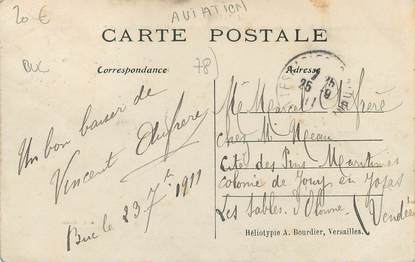 20 €
AVIATION
CARTE POSTALE
Correspondance
78)
Adresse
25
25-9
11
Un bon baiser de
Vincent
Buc le 23 7bre 1911
Mr Marcel
chez Mr Neau
Cité des Pins Maritimes
colonie de Jouy en Josas
Les Sables d'Olonne
Vendée
Héliotypie A. Bourdier, Versailles.